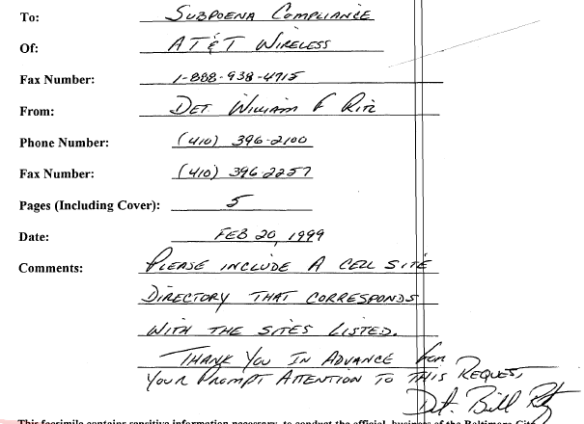 To: SUBPOENA COMPLIANCE
Of: AT&T WIRELESS
Fax Number: 1-888-938-4715
From: DET WILLIAM F RITZ
Phone Number: (410) 396-2100
Fax Number: (410) 396-2257
Pages (Including Cover): 5
Date: FEB 20, 1999
Comments: PLEASE INCLUDE A CELL SITE
DIRECTORY THAT CORRESPONDS
WITH THE SITES LISTED.
THANK YOU IN ADVANCE FOR
YOUR PROMPT ATTENTION TO THIS REQUEST,
Det. Bill Ritz
This facsimile contains sensitive information necessary to conduct the official business of the Baltimore City